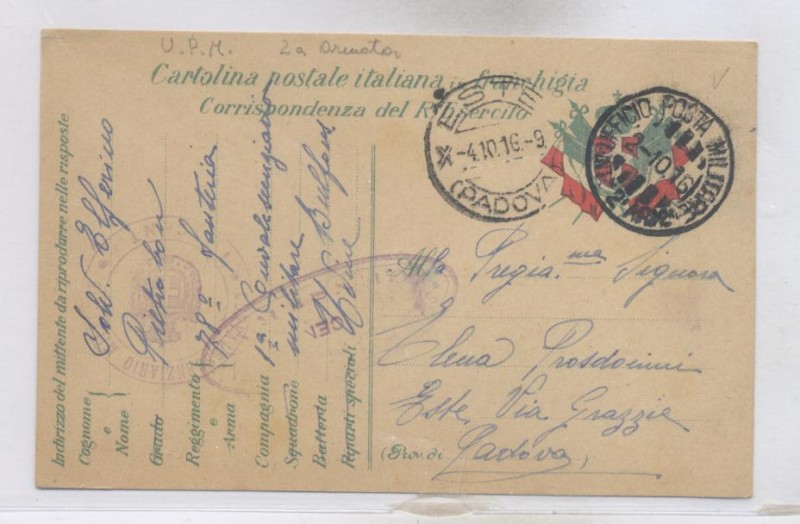 U.P.M. 2a Armata
Cartolina postale italiana in franchigia
Corrispondenza del R. Esercito
ESTE
-4.10.16.-9
(PADOVA)
UFFICIO POSTA MILITARE
-10.16
Indirizzo del mittente da riprodurre nelle risposte
Cognome
e
Nome
Grado
Reggimento 78º
e
Arma fanteria
Compagnia 1ª Convalescenziario
Squadrone militare
Batteria
Riparti speciali Udine
Alla Pregia.ma Signora
Elena Prosdocimi
Este Via Grazzie
(Prov. di Padova)